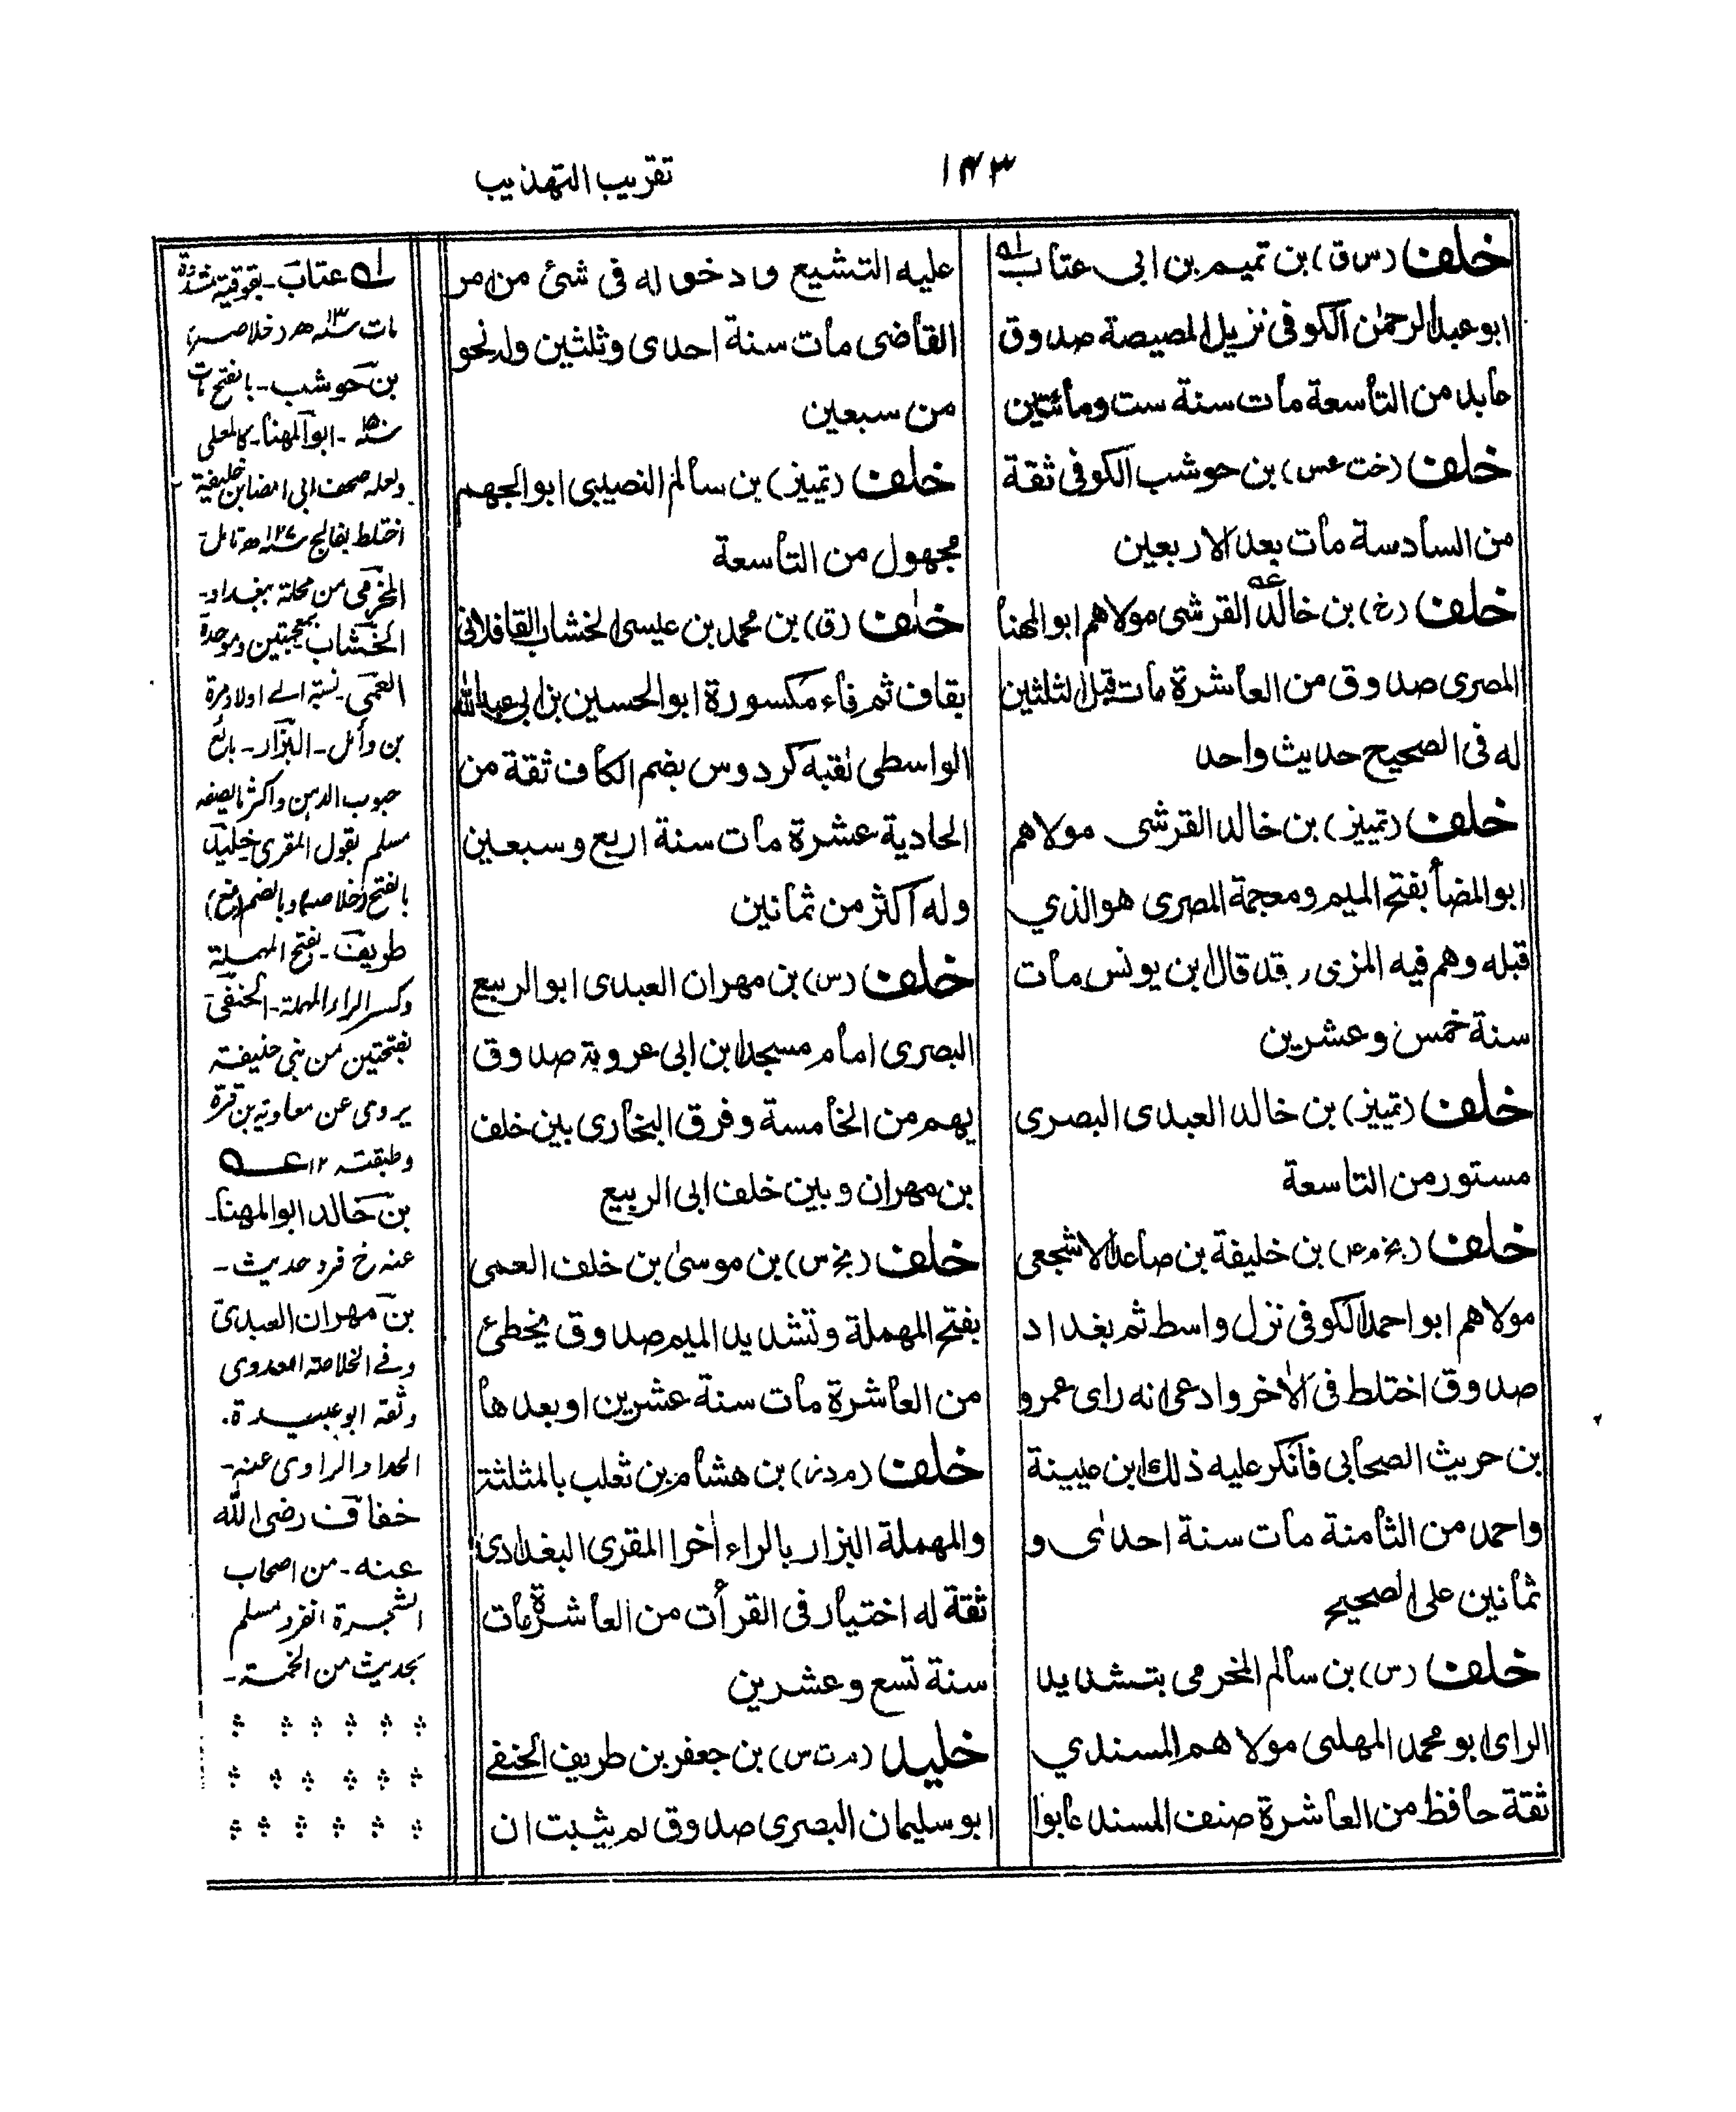 ١٤٣
تقريب التهذيب
خلف (س ق) بن تميم بن ابى عتاب
ابو عبد الرحمٰن الكوفى نزيل المصيصة صدوق
عابد من التاسعة مات سنة ست ومائتين
خلف (خت عس) بن حوشب الكوفى ثقة
من السادسة مات بعد الاربعين
خلف (خ) بن خالد القرشى مولاهم ابو المهنا
المصرى صدوق من العاشرة مات قبل الثلثين
له فى الصحيح حديث واحد
خلف (تمييز) بن خالد القرشى مولاهم
ابو المضا بفتح الميم ومعجمة المصرى هو الذي
قبله وهم فيه المزى وقد قال ابن يونس مات
سنة خمس وعشرين
خلف (تمييز) بن خالد العبدى البصرى
مستور من التاسعة
خلف (بخ م عم) بن خليفة بن صاعد الاشجعى
مولاهم ابو احمد الكوفى نزل واسط ثم بغداد
صدوق اختلط فى الاٰخر وادعى انه راى عمرو
بن حريث الصحابى فانكر عليه ذلك ابن عيينة
واحمد من الثامنة مات سنة احدىٰ و
ثمانين على الصحيح
خلف (س) بن سالم المخرمى بتشديد
الراى ابو محمد المهلبى مولاهم السندي
ثقة حافظ من العاشرة صنف المسند عابوا
عليه التشيع ودخوله فى شئ من امر
القاضى مات سنة احدى وثلثين وله نحو
من سبعين
خلف (تمييز) بن سالم النصيبى ابو الجهم
مجهول من التاسعة
خلف (ق) بن محمد بن عيسى الخشاب القافلانى
بقاف ثم فاء مكسورة ابو الحسين بن ابى عبد الله
الواسطى لقبه كردوس بضم الكاف ثقة من
الحادية عشرة مات سنة اربع وسبعين
وله اكثر من ثمانين
خلف (س) بن مهران العبدى ابو الربيع
البصرى امام مسجد ابن ابى عروبة صدوق
يهم من الخامسة وفرق البخارى بين خلف
بن مهران وبين خلف ابى الربيع
خلف (بخ س) بن موسىٰ بن خلف العمى
بفتح المهملة وتشديد الميم صدوق يخطئ
من العاشرة مات سنة عشرين او بعدها
خلف (م د ز) بن هشام بن ثعلب بالمثلثة
والمهملة البزار بالراء اٰخرا المقرى البغدادى
ثقة له اختيار فى القرأت من العاشرة مات
سنة تسع وعشرين
خليد (م ت س) بن جعفر بن طريف الحنفى
ابو سليمان البصرى صدوق لم يثبت ان
له عتاب - بفوقية مشددة
مات سنة ١٣ هـ (خلاصه)
بن حوشب - بالفتح مات
ابو المهنا - كالمعلى
ولعله صحف ابى المضا بن خليفية
اختلط بفالج سنه ١٢٧ هـ
المخرمى من محلة ببغداد -
الخشاب بمعجمتين وموحدة
العمى - نسبته الے اولاد مرة
بن وائل - البزار - بائع
حبوب الدهن واكثر ما يصفه
مسلم بقول المقرى خليد
بالفتح (خلاصه) وبالضم
طريف - بفتح المهملة
وكسر الراء المهملة - الحنفى
بفتحتين من بنى حنيفته
يروى عن معاويه بن قرة
وطبقته ١٢ عـه
بن خالد ابو المهنا -
عنه خ فرد حديث -
بن مهران العبدى
وفے الخلاصته العدوى
وثقه ابو عبيدة .
الحداد الراوى عنه -
خفاف رضى الله
عنه - من اصحاب
الشجرة انفرد مسلم
بحديث من الخمسة -